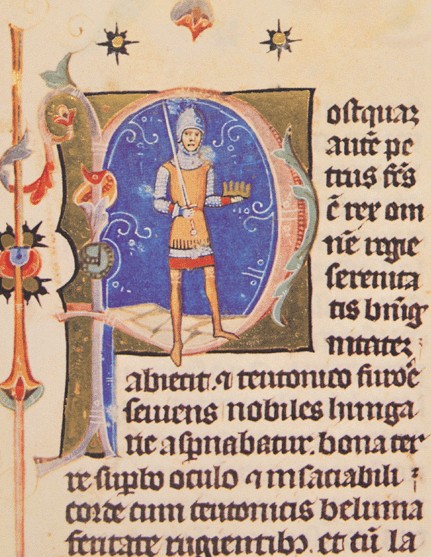 Postquaz
autē pe
trus fc̄s
ē rex om
nē regie
serenita
tis bnīg
nitatez
abiecit. ⁊ teutonico furoē
seuiens nobiles hunga
rie aspnabatur. bona ter
re supbo oculo ⁊ insaciabili
corde cum teutonicis beluina
feritate rugientibꝫ. et cū la